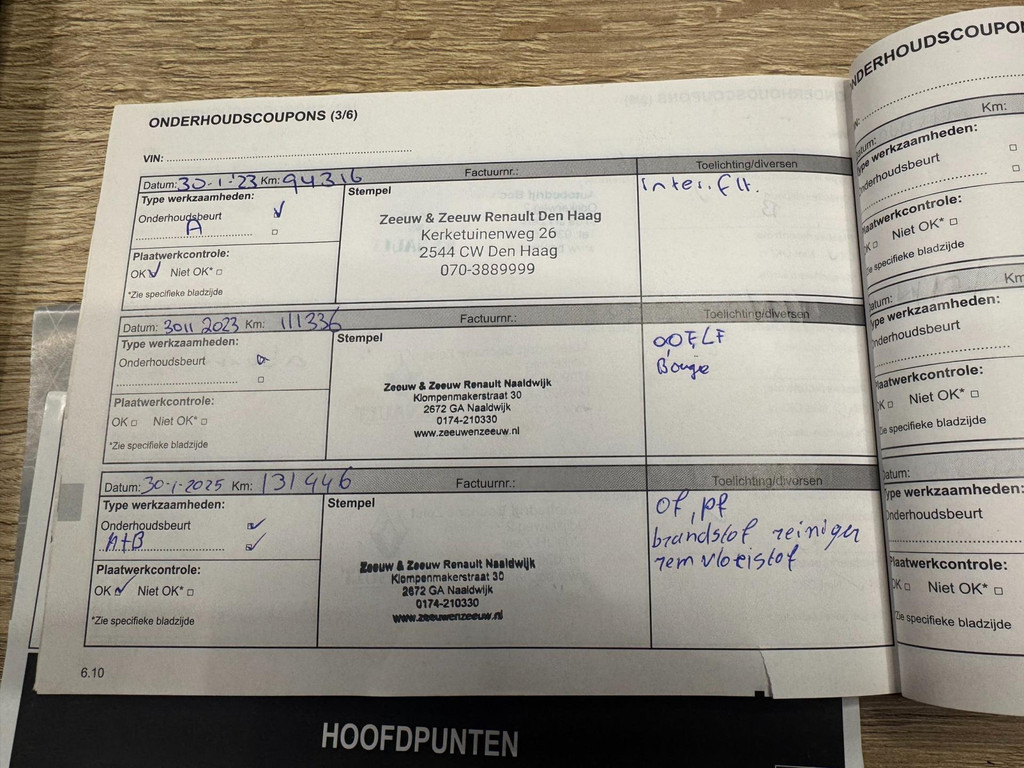 ONDERHOUDSCOUPONS (3/6)
VIN:
Datum: 30-1-'23 Km: 94316 Factuurnr.: Toelichting/diversen
Type werkzaamheden:
Onderhoudsbeurt
A
Plaatwerkcontrole:
OK Niet OK*
*Zie specifieke bladzijde
Stempel
Zeeuw & Zeeuw Renault Den Haag
Kerketuinenweg 26
2544 CW Den Haag
070-3889999
inter.flt.
Datum: 3011 2023 Km: 111336 Factuurnr.: Toelichting/diversen
Type werkzaamheden:
Onderhoudsbeurt
Plaatwerkcontrole:
OK Niet OK*
*Zie specifieke bladzijde
Stempel
Zeeuw & Zeeuw Renault Naaldwijk
Klompenmakerstraat 30
2672 GA Naaldwijk
0174-210330
www.zeeuwenzeeuw.nl
Bougie
Datum: 30-1-2025 Km: 131446 Factuurnr.: Toelichting/diversen
Type werkzaamheden:
Onderhoudsbeurt
A+B
Plaatwerkcontrole:
OK Niet OK*
*Zie specifieke bladzijde
Stempel
Zeeuw & Zeeuw Renault Naaldwijk
Klompenmakerstraat 30
2672 GA Naaldwijk
0174-210330
www.zeeuwenzeeuw.nl
of, pf
brandstof reiniger
rem vloeistof
6.10
HOOFDPUNTEN
ONDERHOUDSCOUPO
Km:
atum:
Type werkzaamheden:
Onderhoudsbeurt
Plaatwerkcontrole:
OK Niet OK*
ie specifieke bladzijde
Km
atum:
ype werkzaamheden:
nderhoudsbeurt
laatwerkcontrole:
K Niet OK*
ie specifieke bladzijde
Datum:
Type werkzaamheden:
Onderhoudsbeurt
Plaatwerkcontrole:
OK Niet OK*
Zie specifieke bladzijde